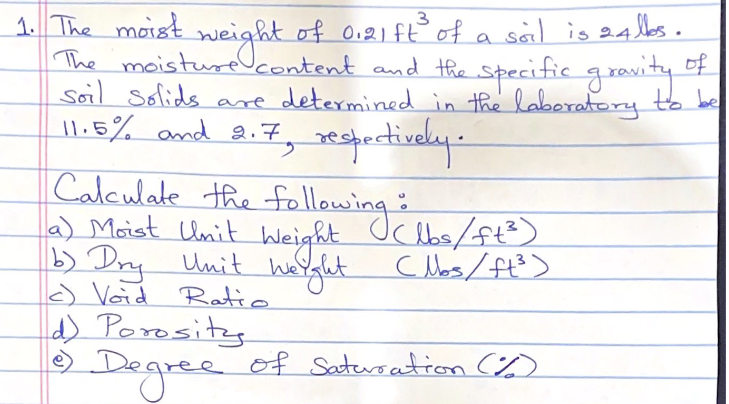 1. The moist weight of 0.21 ft³ of a soil is 24 lbs.
The moisture content and the specific gravity of
soil solids are determined in the laboratory to be
11.5% and 2.7, respectively.
Calculate the following:
a) Moist Unit Weight (lbs/ft³)
b) Dry Unit Weight (lbs/ft³)
c) Void Ratio
d) Porosity
e) Degree of Saturation (%)